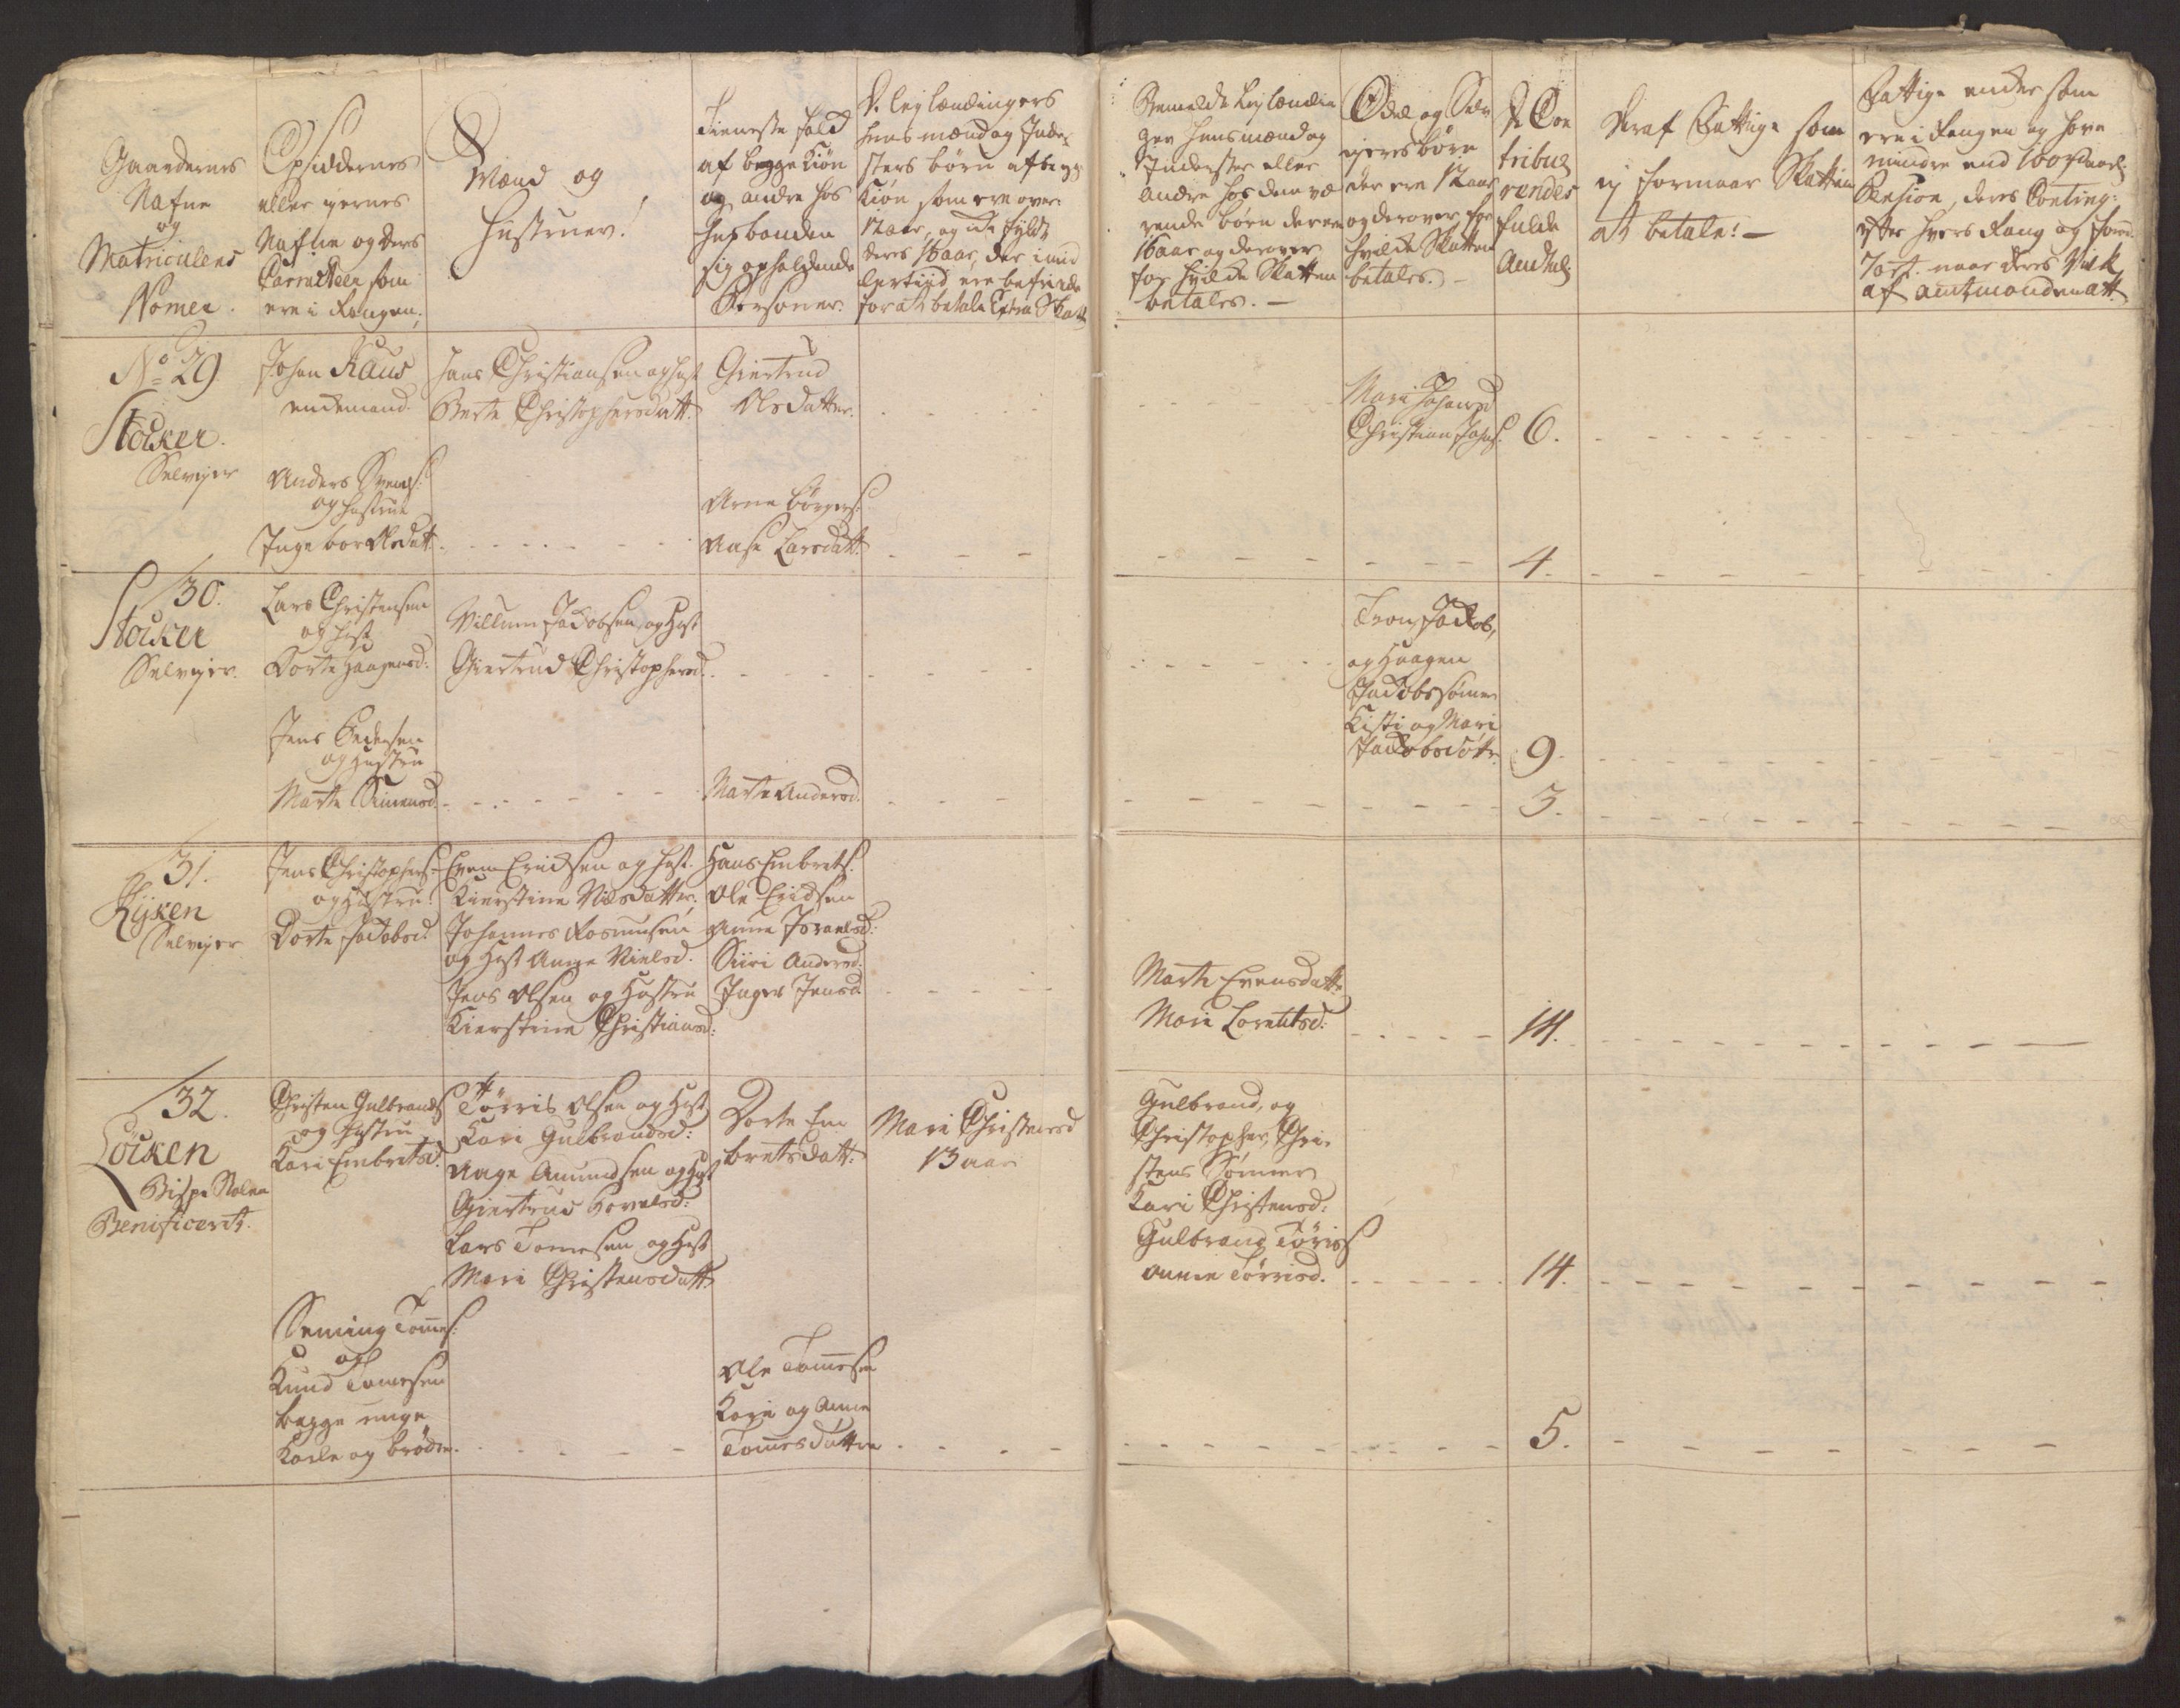 Gaardernes
Nafne
og
Matriculens
Nomer.
Opsiddernes
eller ejernes
Nafne og deres
Carracteer som
ere i Rangen.
Mænd og
Hustruer!
Tieneste folck
af begge Kiøn
og andre hos
Husbonden
sig opholdende
Personer.
Leylændingers
Huusmænd og Inder-
sters børn af begge
Kiøn som ere over
12 aar, og ej fyldt
deres 16 aar, der imid
lertiid ere befriede
for at betale Extra Skatt
Bemelte Leylændin
ger Huusmænd og
Inderster eller
andre hos dem væ
rende børn der ere
16 aar og derover
for hvilke Skatten
betales. —
Odel og Selv
ejeres børn
der ere 12 aar
og derover, for
hvilke Skatten
betales. —
Con
tribue
rendes
fulde
Andtal
Deraf Fattige som
ej formaar Skatten
at betale! —
Fattige encker som
ere i Rangen og have
mindre end 100 rd aarl:
Pension, deres Conting:
efter hvers Rang og
naar deres Vilk
af amtmanden att
No 29
Stöcker.
Selvejer
Johan Raus
enckemand.
Hans Christiansen og Hust
Berte Christophersdatt.
Giertrud
Olsdatter.
Mari Johansd
Christian Johans:
6.
Anders Svends:
og Hustrue
Ingebor Olsdatt.
Arne Börges:
Aase Larsdatt.
4.
30.
Stöcker
Selvejer.
Lars Christensen
og Hust
Dorte Haagensd:
Villum Jacobsen og Hust
Giertrud Christophersd.
Tron, Jacob,
og Haagen
Jacobs sönner
Kisti og Mari
Jacobsdötte
9.
Jens Pedersen
og Hustru
Marte Simensd.
Marte Andersd.
3.
31.
Ryken
Selvejer
Jens Christophers:
og Hustru
Dorte Jacobsd:
Even Ericksen og Hust.
Kierstine Nilsdatter.
Johannes Rasmusen
og Hust Anne Nielsd.
Jens Olsen og Hustru
Kierstine Christiansd:
Hans Embrets:
Ole Ericksen
Anne Israelsd:
Siiri Andersd.
Inger Jensd
Marte Evensdatt
Mari Lorentsd:
14.
32.
Löcken
Bispe Stolen
Benificeret.
Christen Gulbrands
og Hustru
Kari Embretsd.
Törris Olsen og Hust
Kari Gulbrandsd:
Aage Amundsen og Hust
Giertrud Hovelsd:
Lars Tomesen og Hust
Mari Christensdatt
Dorte Em
bretsdatt:
Mari Christensd
13 aar
Gulbrand, og
Christopher, Chri-
stens Sönner
Kari Christensd:
Gulbrand Töriss
Anne Törrisd.
14.
Seming Tomes:
og
Knud Tomesen
begge unge
Karle og brödre.
Ole Tomesen
Kari og Anne
Tomesdöttre
5.